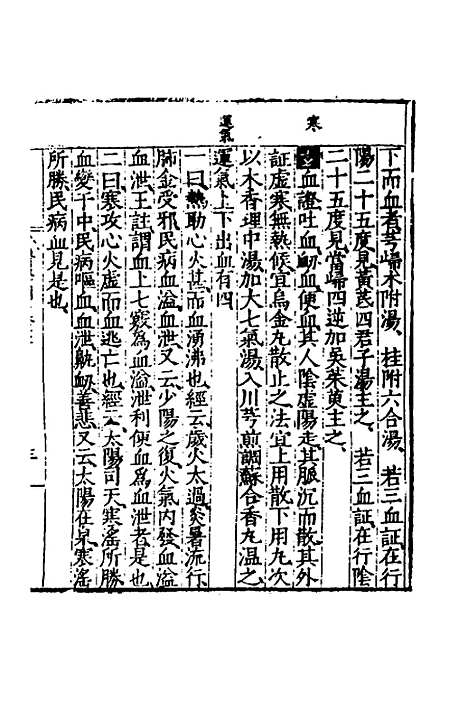 下而血者芎歸朮附湯、桂附六合湯、若三血証在行
陽二十五度見黃芪四君子湯主之、若三血証在行陰
二十五度見當歸四逆加吳茱萸主之、
寒
血證吐血衂血便血其人陰虛陽走其脈沉而散其外
証虛寒無熱候宜烏金丸散止之法宜上用散下用丸次
以木香理中湯加大七氣湯入川芎煎調蘇合香丸溫之
運氣
運氣上下出血有四
一曰熱助心火甚而血湧沸也經云歲火太過炎暑流行
肺金受邪民病血溢血泄又云少陽之復火氣內發血溢
血泄王註謂血上七竅為血溢泄利便血為血泄者是也
二曰寒攻心火虛而血逃亡也經云太陽司天寒淫所勝
血變于中民病嘔血血泄鼽衂善悲又云太陽在泉寒淫
所勝民病血見是也
三